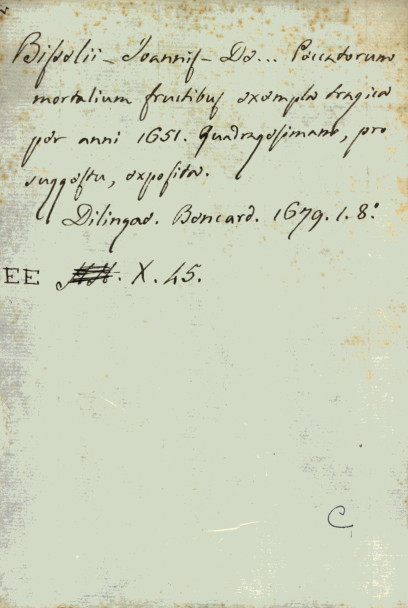 Bisselii - Joannis - De... Peccatorum
mortalium fructibus exempla tragica
per anni 1651. Quadragesimam, pro
suggestu, exposita.
Dilingae. Bencard. 1679. 1. 8:
EE X. 45.
C